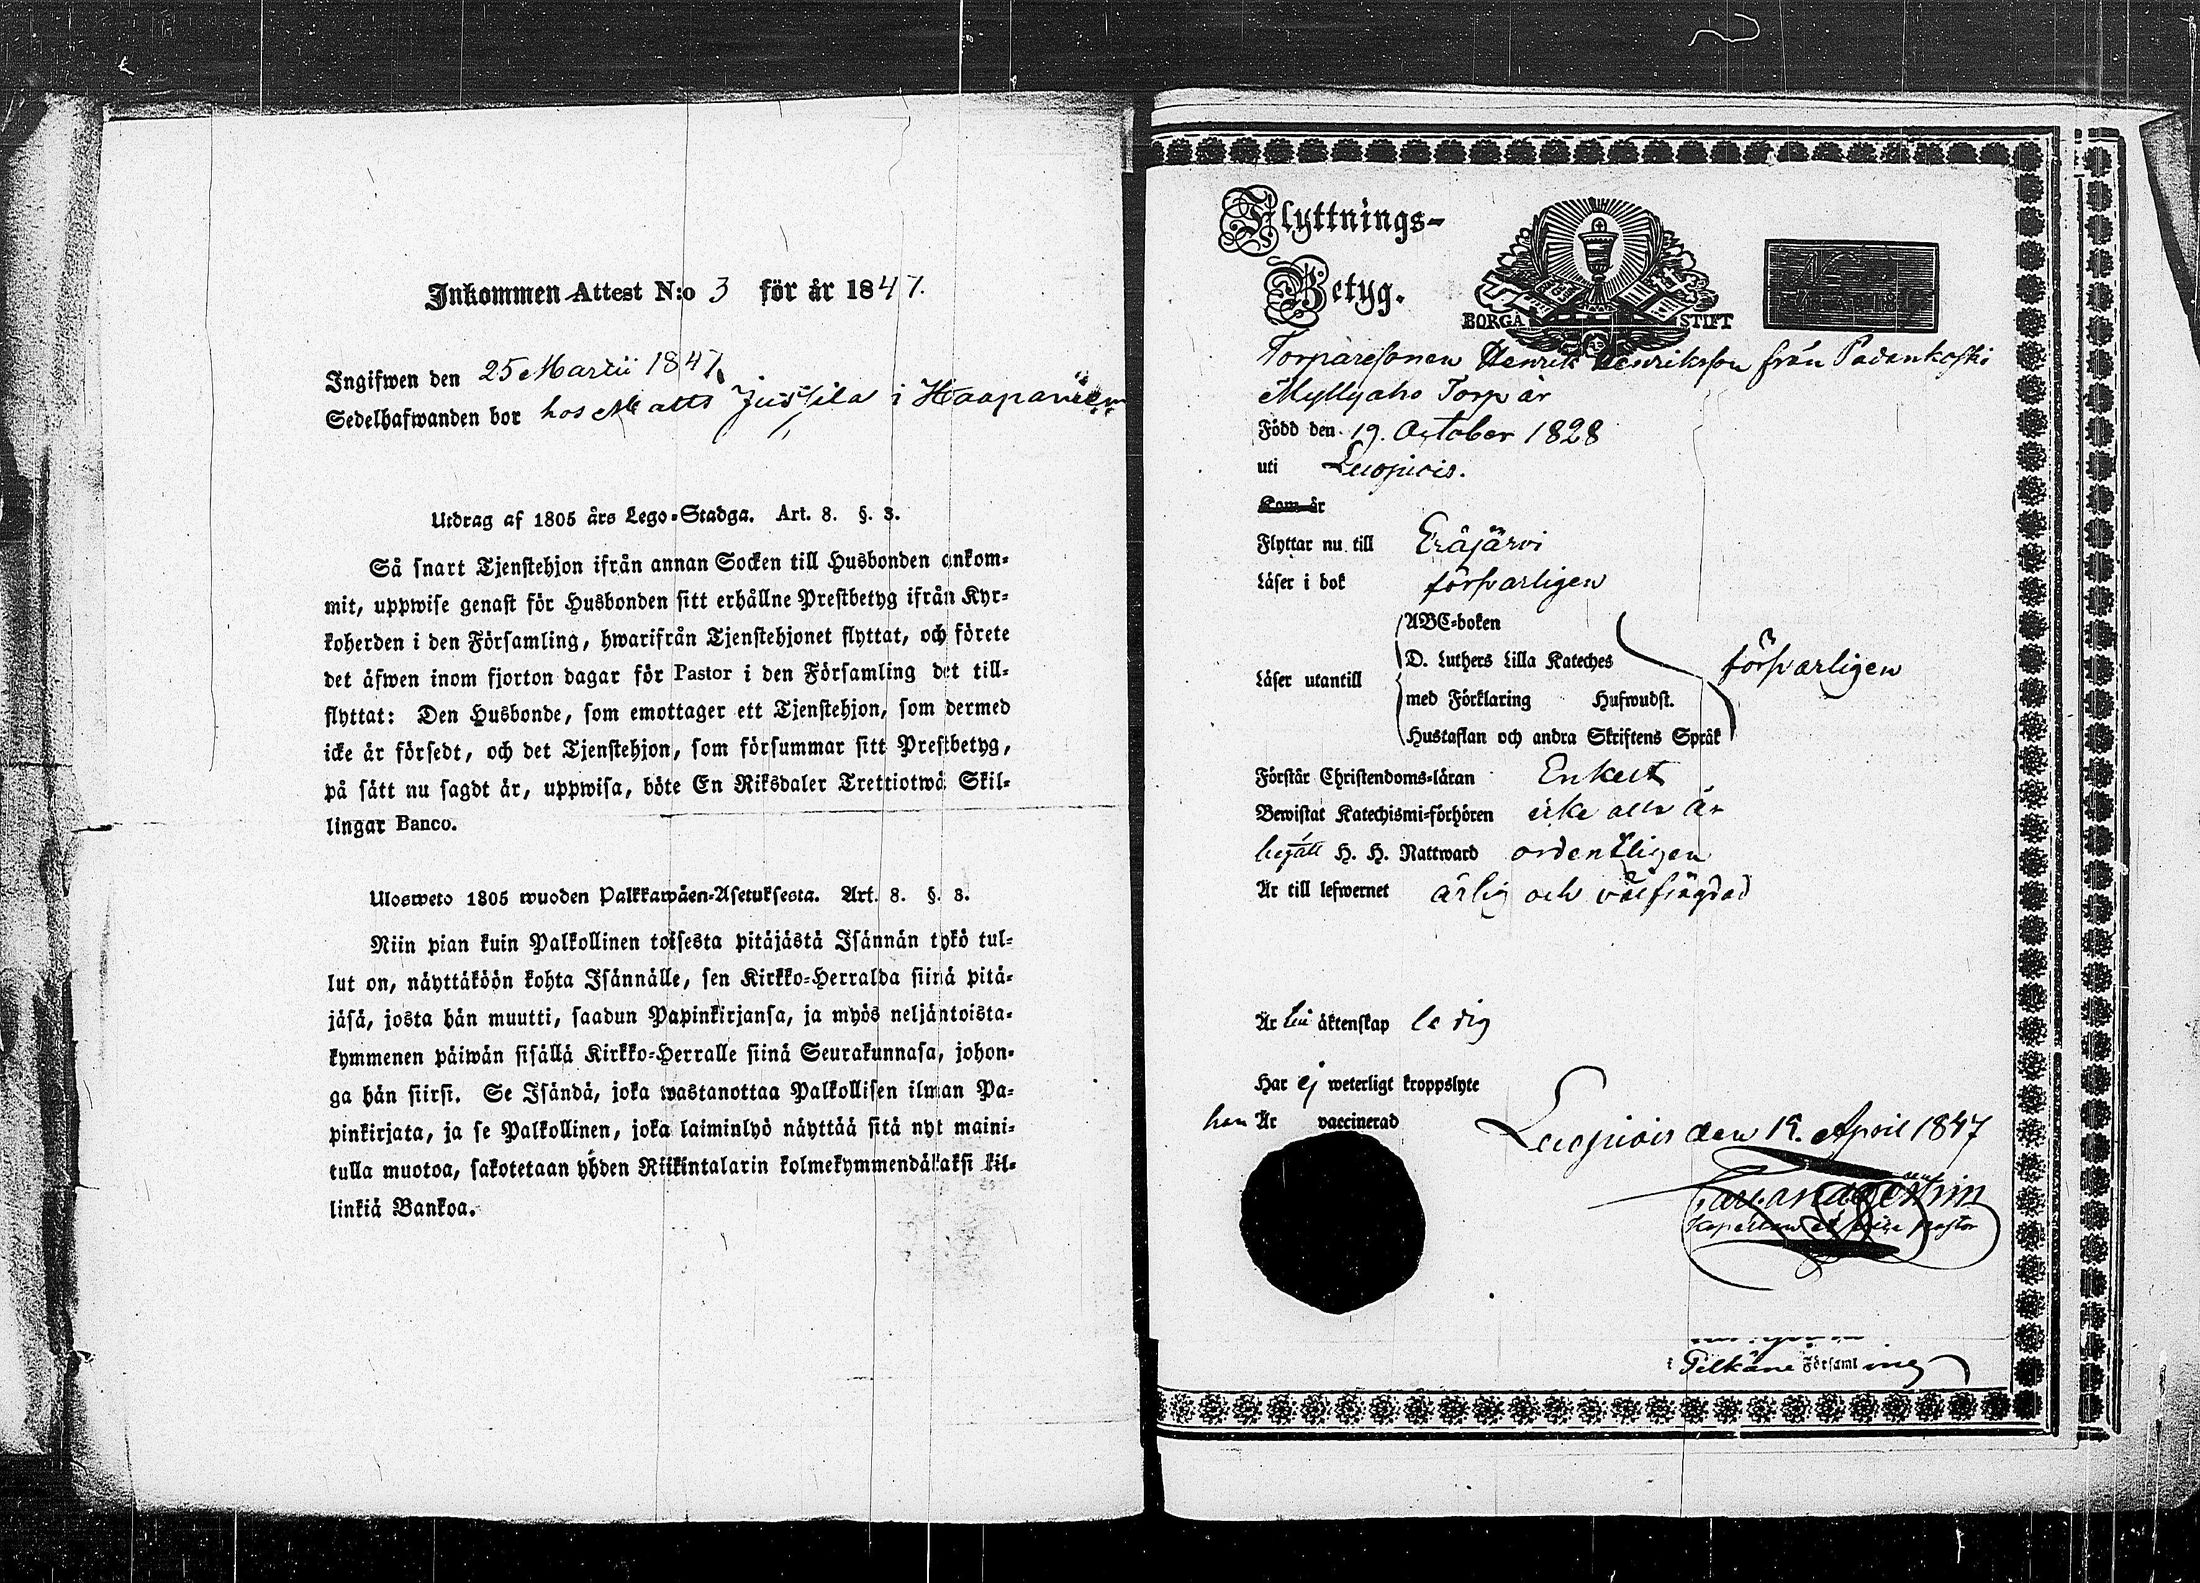 Inkommen Attest N:o 3 för år 1847.
Ingifwen den 25 Martii 1847
Sedelhafwanden bor hos Matts Jussila i Haapaniemi
Utdrag af 1805 års Lego-Stadga. Art. 8. §. 3.
Så snart Tjenstehjon ifrån annan Socken till Husbonden ankom-
mit, uppwise genast för Husbonden sitt erhållne Prestbetyg ifrån Kyr-
koherden i den Församling, hwarifrån Tjenstehjonet flyttat, och förete
det äfwen inom fjorton dagar för Pastor i den Församling det till-
flyttat: Den Husbonde, som emottager ett Tjenstehjon, som dermed
icke är försedt, och det Tjenstehjon, som försummar sitt Prestbetyg,
på sätt nu sagdt är, uppwisa, böte En Riksdaler Trettiotwå Skil-
lingar Banco.
Ulosweto 1805 wuoden Palkkawäen-Asetuksesta. Art. 8. §. 3.
Niin pian kuin Palkollinen toisesta pitäjästä Isännän tykö tul-
lut on, näyttäköön kohta Isännälle, sen Kirkko-Herralda siinä pitä-
jäsä, josta hän muutti, saadun Papinkirjansa, ja myös neljäntoista-
kymmenen päiwän sisällä Kirkko-Herralle siinä Seurakunnasa, johon-
ga hän siirsi. Se Isändä, joka wastanottaa Palkollisen ilman Pa-
pinkirjata, ja se Palkollinen, joka laiminlyö näyttää sitä nyt maini-
tulla muotoa, sakotetaan yhden Riikintalarin kolmekymmendäkaksi kil-
linkiä Bankoa.
Flyttnings-
Betyg.
BORGÅ STIFT
Torparesonen Henrik Henriksson från Padankoski
Myllyaho Torp är
Född den 19. October 1828
uti Luopiois.
Kom år
Flyttar nu till Eräjärvi
Läser i bok försvarligen
ABC-boken
D. Luthers Lilla Kateches
Läser utantill med Förklaring Hufwudst. försvarligen
Hustaflan och andra Skriftens Språk
Förstår Christendoms-läran Enkelt
Bewistat Katechismi-förhören icke alla år
begått H. H. Nattward ordentligen
Är till lefwernet ärlig och välfrägdad
Är till äktenskap ledig
Har ej weterligt kroppslyte
han Är vaccinerad
Luopiois den 19. April 1847
i Pelkäne Församling